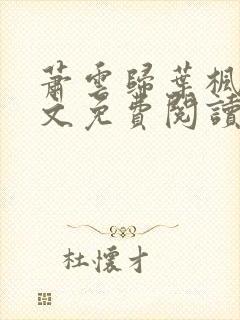 蕭雲歸葉楓
文免費閱讀
杜懷才